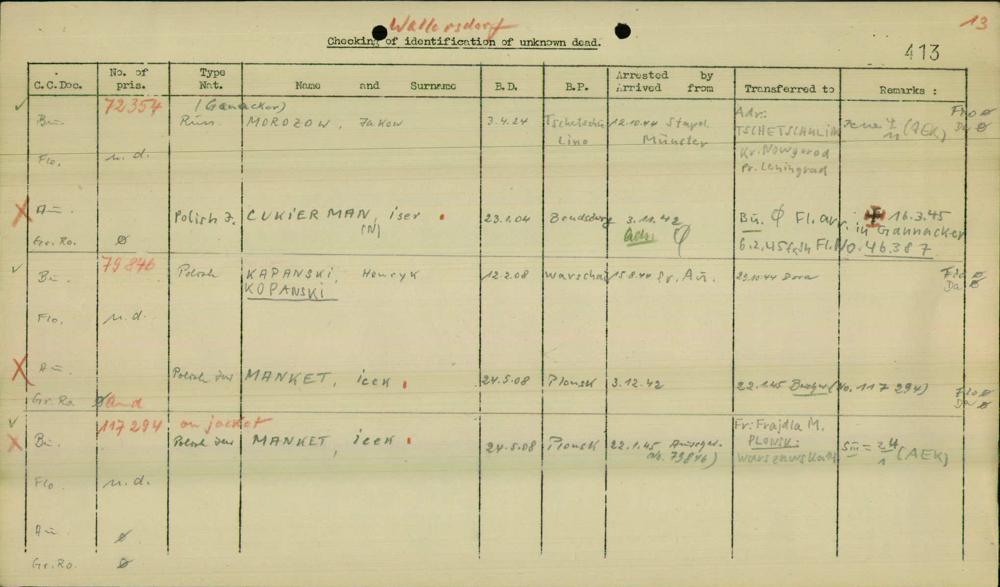 Wallersdorf
13
Checking of identification of unknown dead.
413
C.C.Doc. No. of pris. Type Nat. Name and Surname B.D. B.P. Arrested by Arrived from Transferred to Remarks :
72354 (Gannacker) Adr: Flo ø
Bu. Russ. MOROZOW, Jakow 3.4.24 12.10.44 Stapol. TSCHETSCHULIN (AEK) Da ø
Lino Münster Kr. Nowgorod
Flo. n.d. Pr. Leningrad
Au. Polish J. CUKIERMAN, iser 23.1.04 Bendsburg 3.11.42 Bu. Ø Fl. arr. 16.3.45
(N) in Gannacker
Gr.Ro. ø 6.2.45 Fl. No. 46387
79846 Flo ø
Bu. Polish KAPANSKI, Henryk 12.2.08 Warschau 15.8.44 Au. 29.10.44 Dora Da ø
KOPANSKI
Flo. n.d.
Au. Polish Jew MANKET, icek 24.5.08 Plonsk 3.12.42 22.1.45 (No. 117 294) Flo ø
Gr.Ro. ø And Da ø
117 294 on jacket Fr: Frajdla M.
Bu. Polish Jew MANKET, icek 24.5.08 Plonsk 22.1.45 PLONSK: (AEK)
No. 79846)
Flo n.d.
Au. ø
Gr.Ro. ø